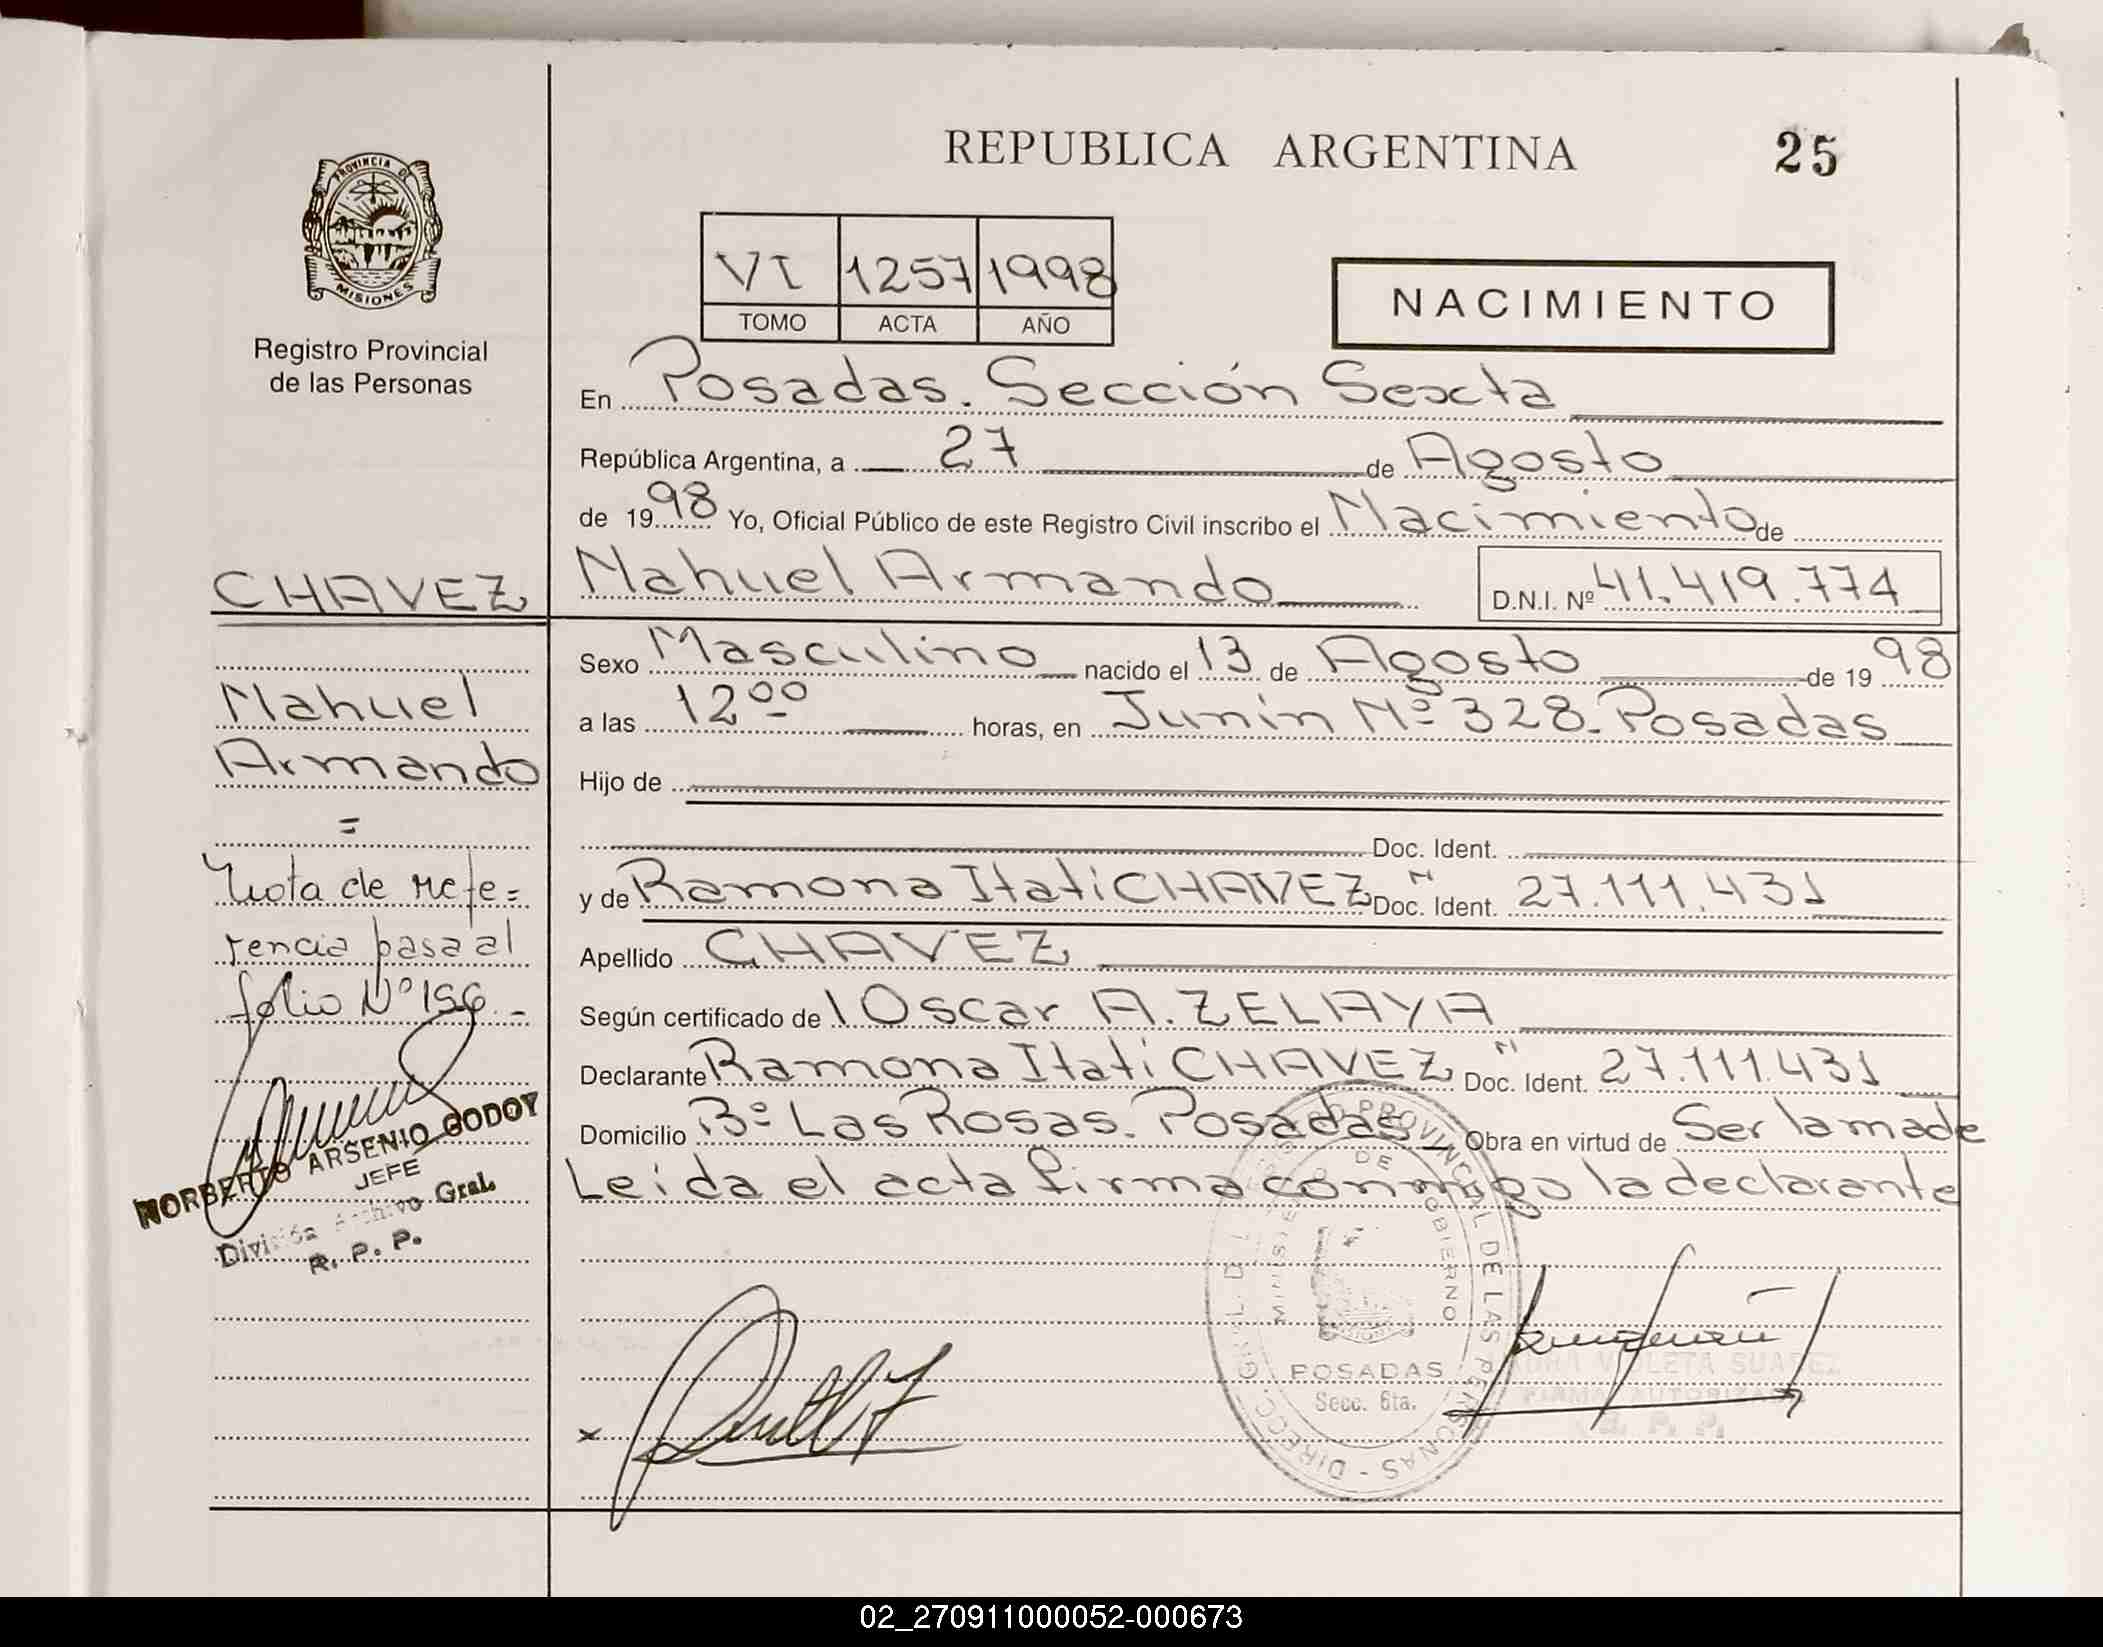 REPUBLICA ARGENTINA
25
PROVINCIA DE
MISIONES
Registro Provincial
de las Personas
VI 1257 1998
TOMO ACTA AÑO
NACIMIENTO
En Posadas. Sección Sexta
República Argentina, a 27 de Agosto
de 1998 Yo, Oficial Público de este Registro Civil inscribo el Nacimiento de
CHAVEZ
Nahuel Armando
D.N.I. Nº 41.419.774
Sexo Masculino nacido el 13 de Agosto de 1998
a las 12⁰⁰ horas, en Junín Nº 328. Posadas
Hijo de
Doc. Ident.
y de Ramona Itatí CHAVEZ Doc. N Ident. 27.111.431
Apellido CHAVEZ
Según certificado de Oscar A. ZELAYA
Declarante Ramona Itatí CHAVEZ Doc. N Ident. 27.111.431
Domicilio Bº Las Rosas. Posadas Obra en virtud de Ser la made
Leída el acta firma conmigo la declarante
Nahuel
Armando
=
Nota de refe=
rencia pasa al
folio Nº 196.-
NORBERTO ARSENIO GODOY
JEFE
División Archivo Gral.
R. P. P.
DIRECC. GRAL. DEL REGISTRO PROVINCIAL DE LAS PERSONAS -
MINISTERIO DE GOBIERNO
POSADAS
Secc. 6ta.
VIOLETA SUAREZ
FIRMA AUTORIZADA
R. P. P.
x
02_270911000052-000673